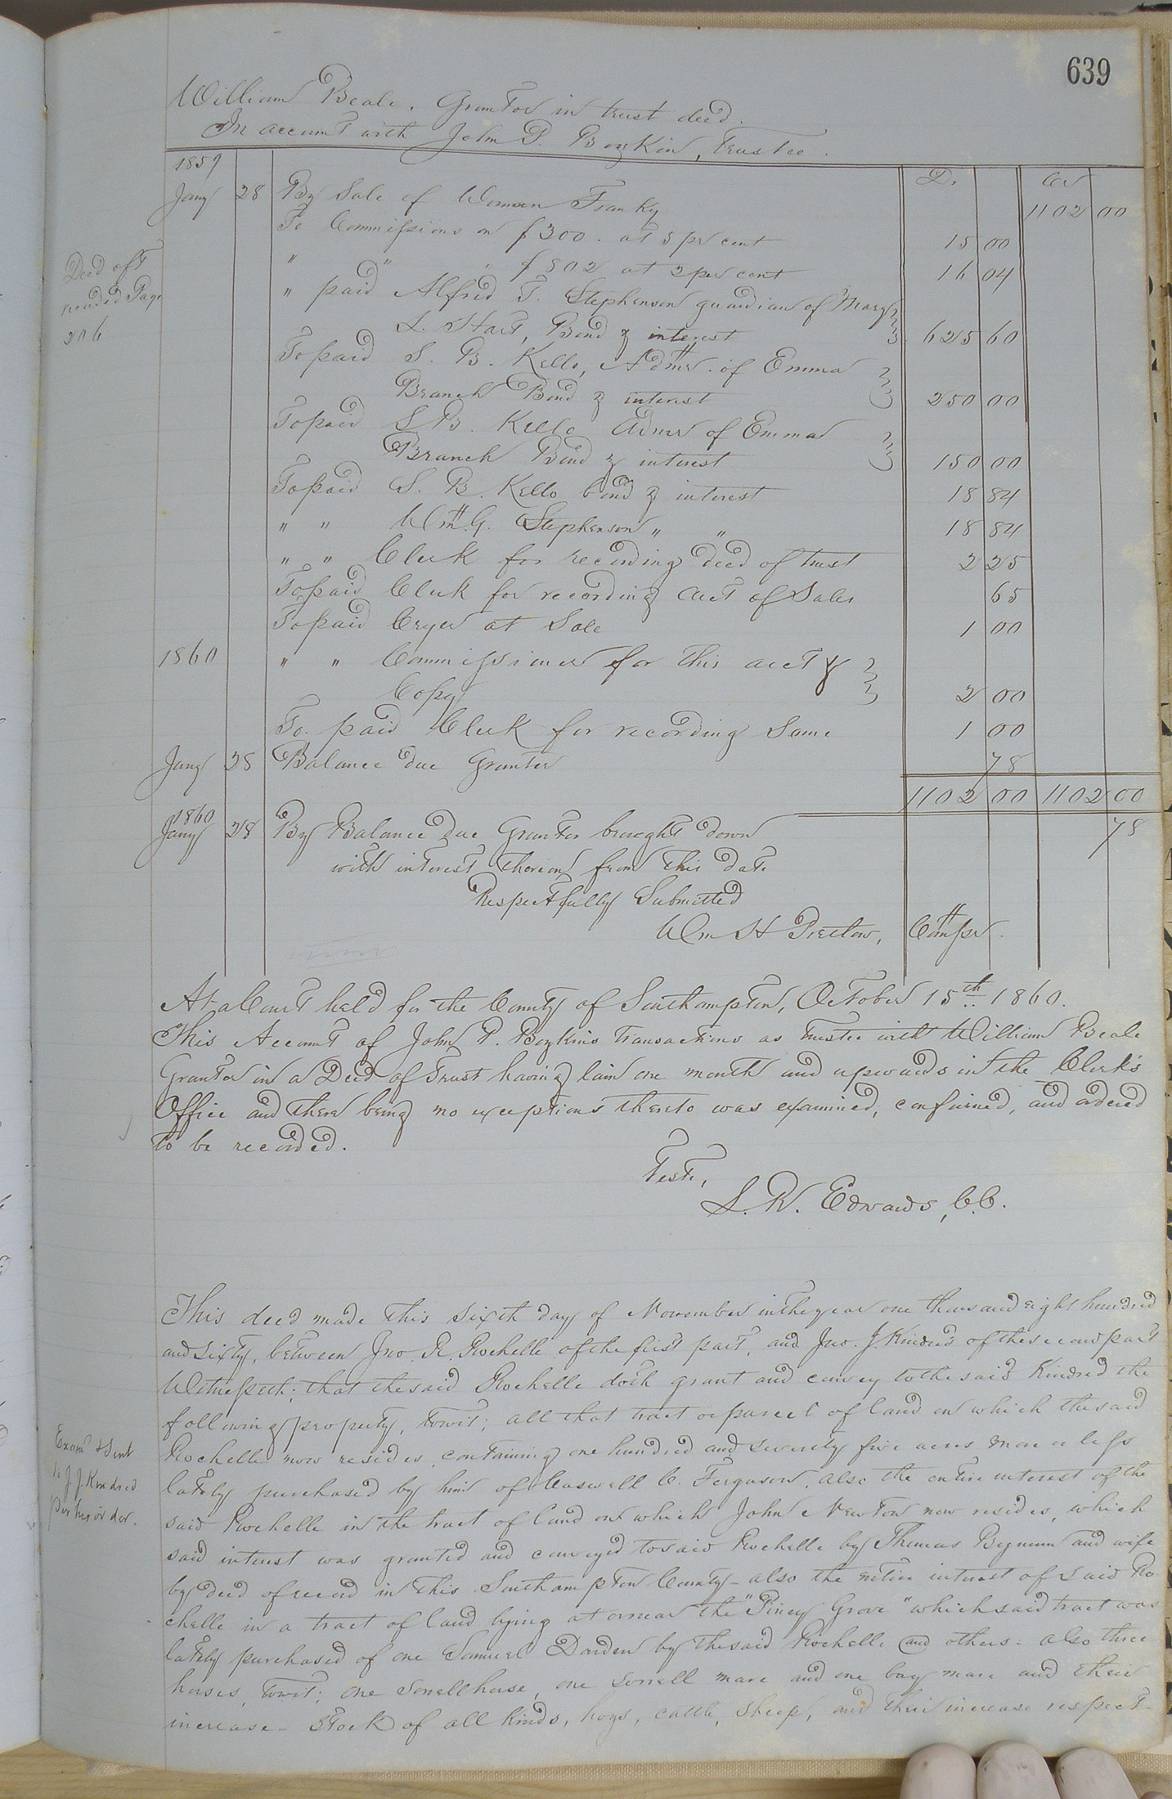 639
William Beale, Grantor in trust deed.
In account with John D. Boykin, Trustee.
1859 Dr Cr
Jany 28 By Sale of Woman Franky 1102 00
To Commissions on $300. at 5 per cent 15 00
" " " $802 at 2 per cent 16 04
" paid Alfred T. Stephenson guardian of Mary
L. Hart, Bond & interest 625 60
Deed of T
recorded Page
206
To paid S. B. Kello, Admr. of Emma
Branch Bond & interest 250 00
To paid S. B. Kello Admr of Emma
Branch Bond & interest 150 00
To paid S. B. Kello bond & interest 18 84
" " Wm. G. Stephenson " " 18 84
" " Clerk for recording deed of trust 2 25
To paid Clerk for recording acct of Sales 65
To paid Cryer at Sale 1 00
1860 " " Commissioner for this acct &
Copy 2 00
To paid Clerk for recording Same 1 00
Jany 28 Balance due Grantor 78
1102 00 1102 00
1860
Jany 28 By Balance due Grantor brought down 78
with interest thereon from this date
Respectfully Submitted
Wm H Pretlow, Comsr.
At a Court held for the County of Southampton, October 15th 1860.
This Account of John D. Boykins transactions as trustee with William Beale
Grantor in a Deed of Trust having lain one month and upwards in the Clerk's
Office and there being no exceptions thereto was examined, confirmed, and ordered
to be recorded.
Teste,
L. R. Edwards, C.C.
This deed made this sixth day of November in the year one thousand eight hundred
and sixty, between Jno. R. Rochelle of the first part, and Jno. J. Kindred of the second part
Witnesseth; that the said Rochelle doth grant and convey to the said Kindred the
following property, towit; all that tract or parcel of land on which the said
Rochelle now resides containing one hundred and seventy five acres more or less
lately purchased by him of Caswell C. Ferguson, also the entire interest of the
said Rochelle in the tract of land on which John Newton now resides, which
said interest was granted and conveyed to said Rochelle by Thomas Bynum and wife
by deed of record in this Southampton County - also the entire interest of said Ro-
chelle in a tract of land lying at or near the "Piney Grove" which said tract was
lately purchased of one Samuel Darden by the said Rochelle and others - also three
horses, towit; one sorrell horse, one sorrell mare and one bay mare and their
increase - Stock of all kinds, hogs, cattle, sheep, and their increase respect-
Exam & Sent
to J. J. Kindred
per his order.